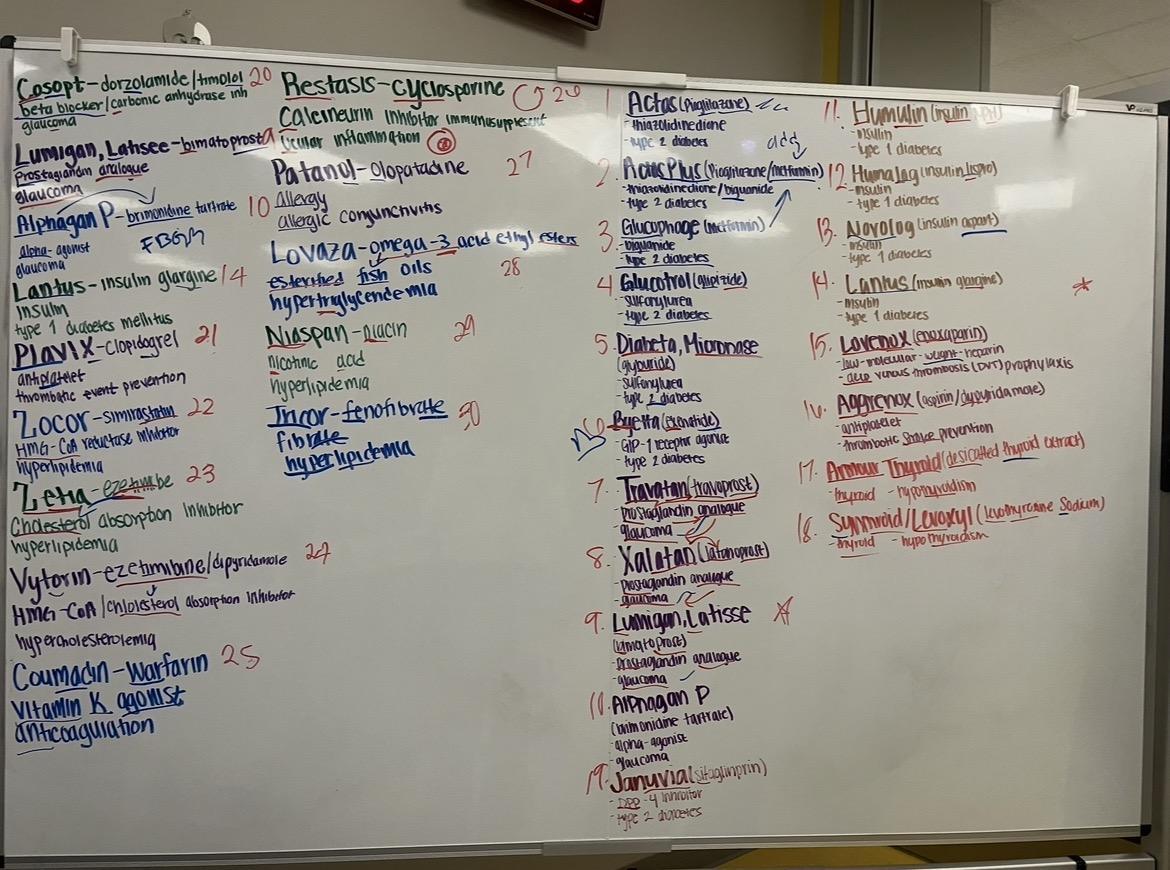 Cosopt-dorzolamide/timolol 20
beta blocker/carbonic anhydrase inh
glaucoma
Lumigan, Latisee-bimatoprost 9
Prostaglandin analogue
glaucoma
Alphagan P-brimonidine tartrate 10
alpha-agonist
glaucoma
Lantus-insulin glargine 14
Insulin
type 1 diabetes mellitus
PlaviX-clopidogrel 21
antiplatelet
thrombotic event prevention
Zocor-simvastatin 22
HMG-CoA reductase inhibitor
hyperlipidemia
Zetia-ezetimibe 23
Cholesterol absorption inhibitor
hyperlipidemia
Vytorin-ezetimibine/dipyridamole 24
HMG-CoA/chlolesterol absorption inhibitor
hypercholesterolemia
Coumadin-Warfarin 25
Vitamin K agonist
anticoagulation
Restasis-cyclosporine 26
Calcineurin inhibitor immunosuppresent
Ocular inflammation
Patanol-olopatadine 27
Allergy
allergic conjunctivitis
Lovaza-omega-3 acid ethyl esters
esterified fish oils 28
hypertriglycendemia
Niaspan-niacin 29
nicotinic acid
hyperlipidemia
Tricor-fenofibrate 30
fibrate
hyperlipidemia
1. Actos (Pioglitazone)
-thiazolidinedione
-type 2 diabetes
2. ActosPlus (Pioglitazone/metformin)
-thiazolidinedione/biguanide
-type 2 diabetes
3. Glucophage (metformin)
-biguanide
-type 2 diabetes
4 Glucotrol (glipizide)
-sulfonylurea
-type 2 diabetes
5. Diabeta, Micronase
(glyburide)
-sulfonylurea
-type 2 diabetes
6 Byetta (exenatide)
-GIP-1 receptor agonist
-type 2 diabetes
7. Travatan (travoprost)
-prostaglandin analogue
-glaucoma
8. Xalatan (latanoprost)
-prostaglandin analogue
-glaucoma
9. Lumigan, Latisse
(bimatoprost)
-prostaglandin analogue
-glaucoma
10. Alphagan P
(brimonidine tartrate)
-alpha-agonist
-glaucoma
19. Januvia (sitaglinprin)
-DPP-4 inhibitor
-type 2 diabetes
11. Humulin (insulin NPH)
-insulin
-type 1 diabetes
12. Humalog (insulin lispro)
-insulin
-type 1 diabetes
13. Novolog (insulin aspart)
-insulin
-type 1 diabetes
14. Lantus (insulin glargine)
-insulin
-type 1 diabetes
15. Lovenox (enoxaparin)
-low-molecular-weight-heparin
-deep venous thrombosis (DVT) prophylaxis
16. Aggrenox (aspirin/dypyridamole)
-antiplatelet
-thrombotic stroke prevention
17. Armour Thyroid (desicatted thyroid extract)
-thyroid -hypothyroidism
18. Synthroid/Levoxyl (levothyroxine Sodium)
-thyroid -hypothyroidism